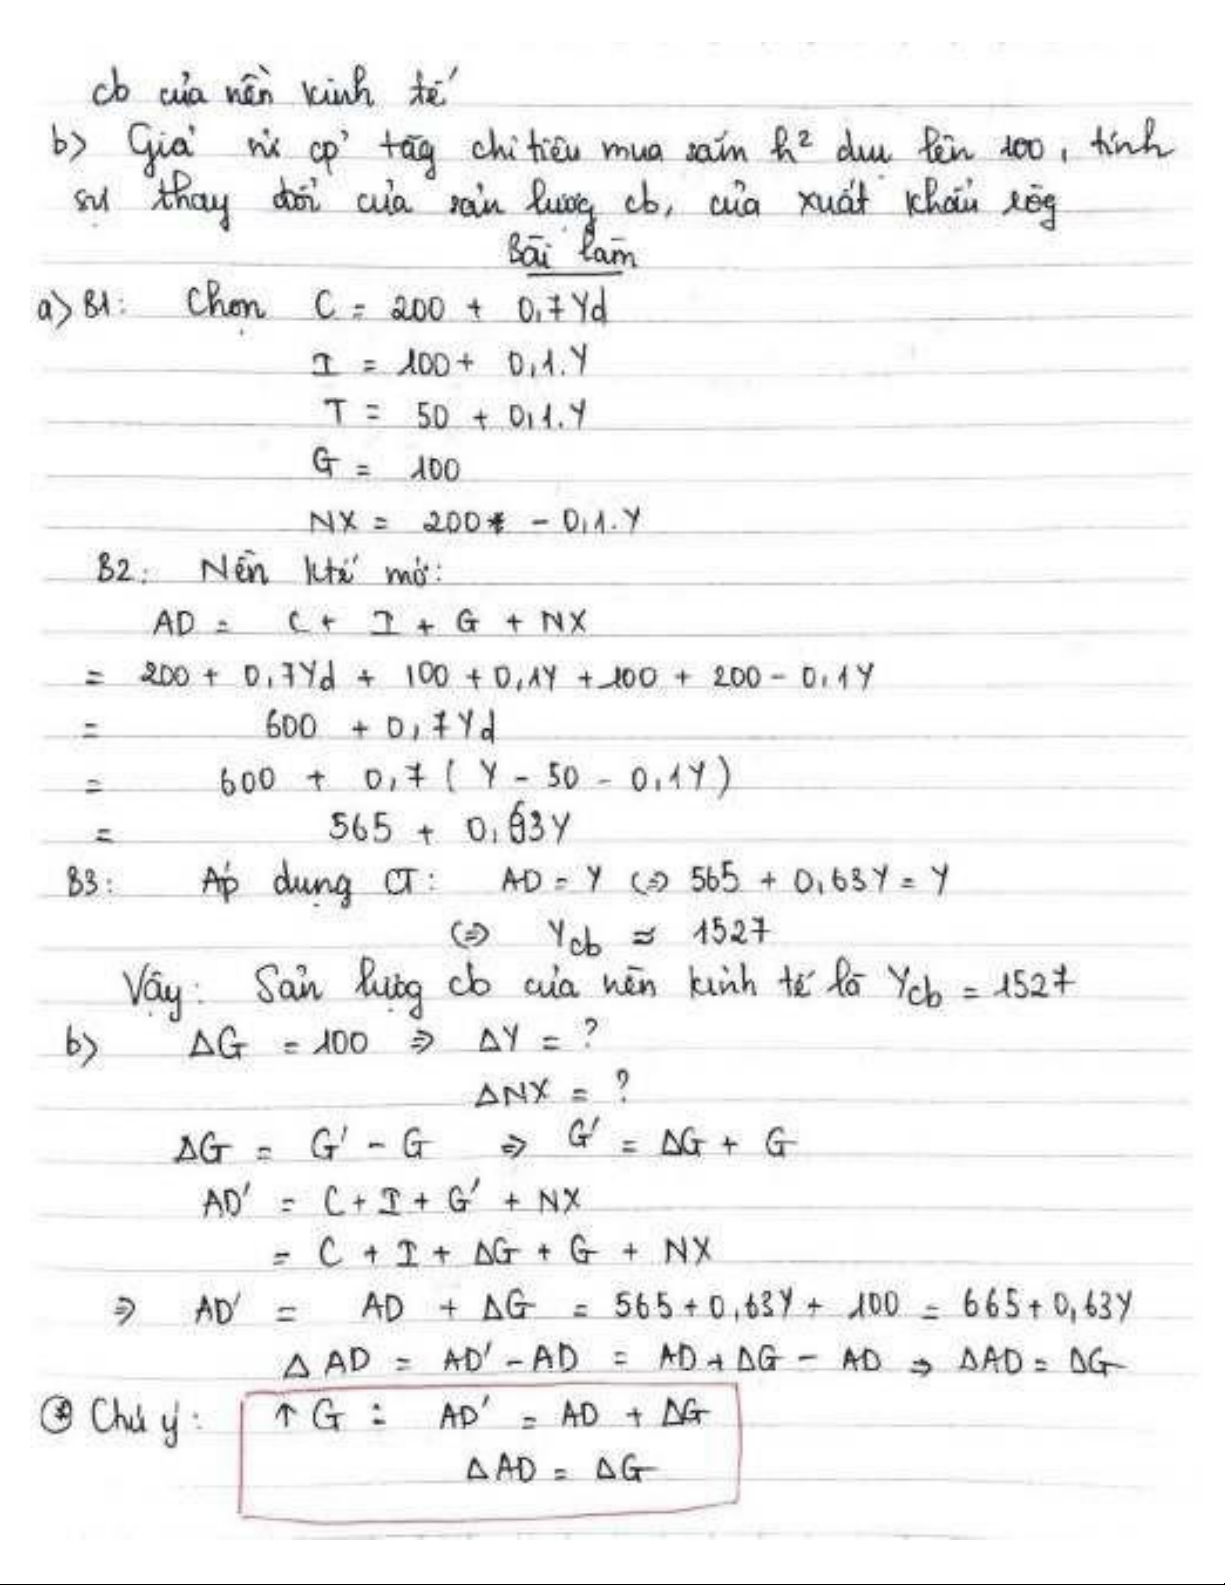 cb của nền kinh tế
b) Giả sử cp' tăg chi tiêu mua sắm h² dvu lên 100, tính
sự thay đổi của sản lượg cb, của xuất khẩu ròg
Bài làm
a) B1: Chọn C = 200 + 0,7Yd
I = 100 + 0,1.Y
T = 50 + 0,1.Y
G = 100
NX = 200 - 0,1.Y
B2: Nền ktế mở:
AD = C + I + G + NX
= 200 + 0,7Yd + 100 + 0,1Y + 100 + 200 - 0,1Y
= 600 + 0,7Yd
= 600 + 0,7 ( Y - 50 - 0,1Y )
= 565 + 0,63Y
B3: Áp dụng CT: AD = Y (=) 565 + 0,63Y = Y
(=) Ycb ≈ 1527
Vậy: Sản lượg cb của nền kinh tế là Ycb = 1527
b) ΔG = 100 => ΔY = ?
ΔNX = ?
ΔG = G' - G => G' = ΔG + G
AD' = C + I + G' + NX
= C + I + ΔG + G + NX
=> AD' = AD + ΔG = 565 + 0,63Y + 100 = 665 + 0,63Y
ΔAD = AD' - AD = AD + ΔG - AD => ΔAD = ΔG
⊛ Chú ý: ↑ G : AD' = AD + ΔG
ΔAD = ΔG